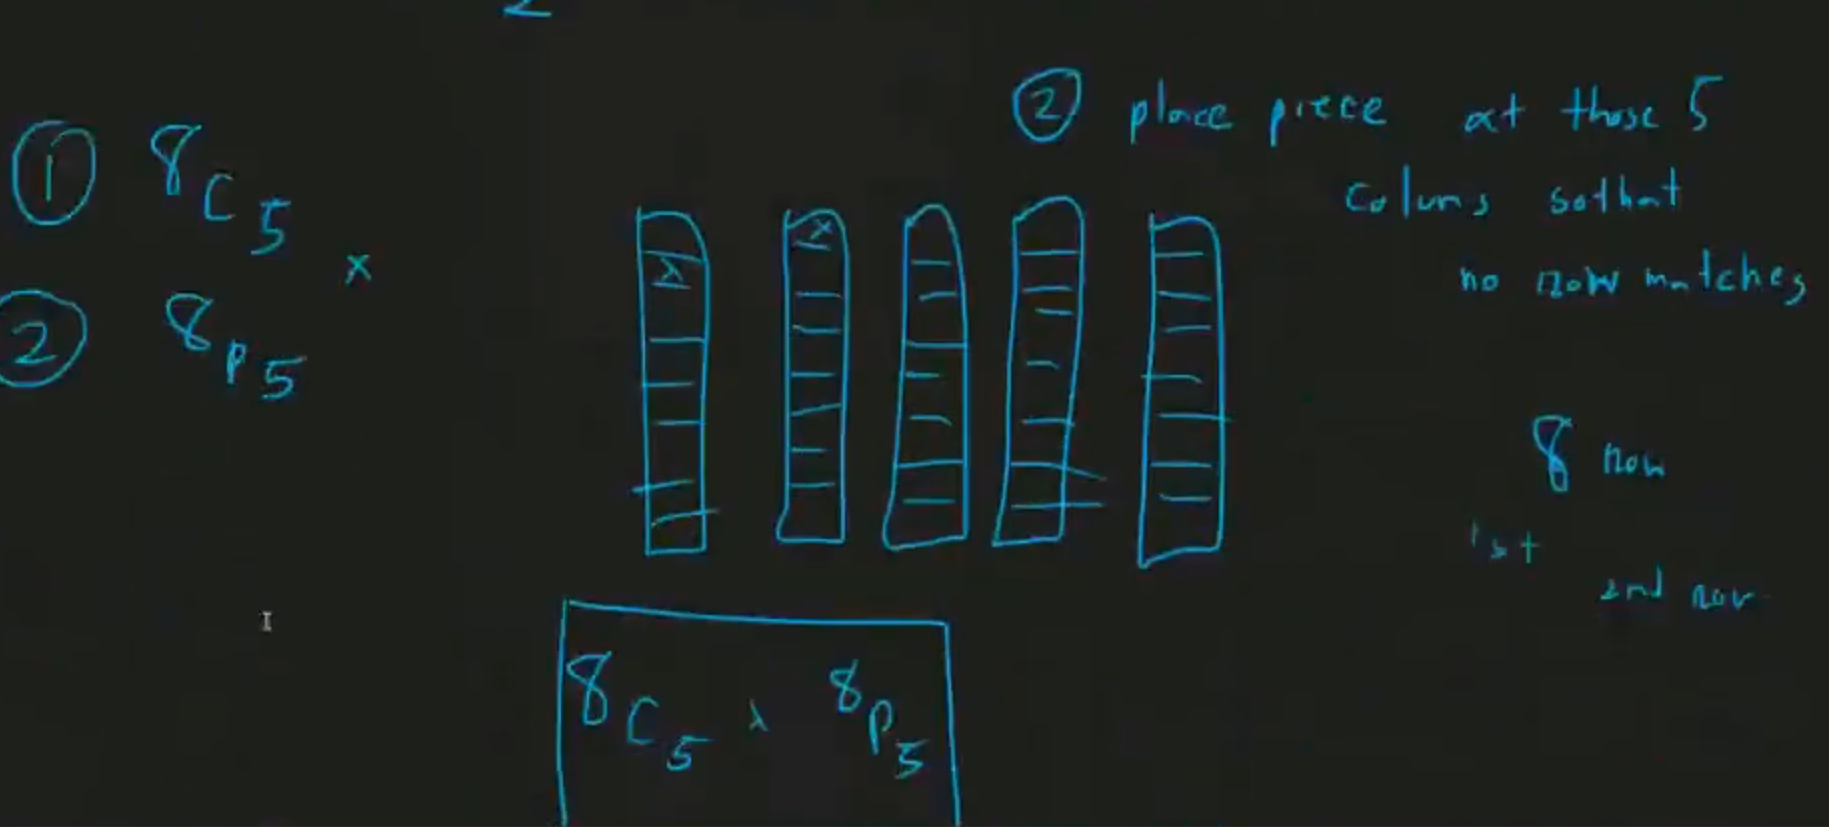 ① 8C5
x
② 8P5
② place piece at those 5
colums sothat
no row matches
x
x
8 row
1st
2nd row
8C5 x 8P5